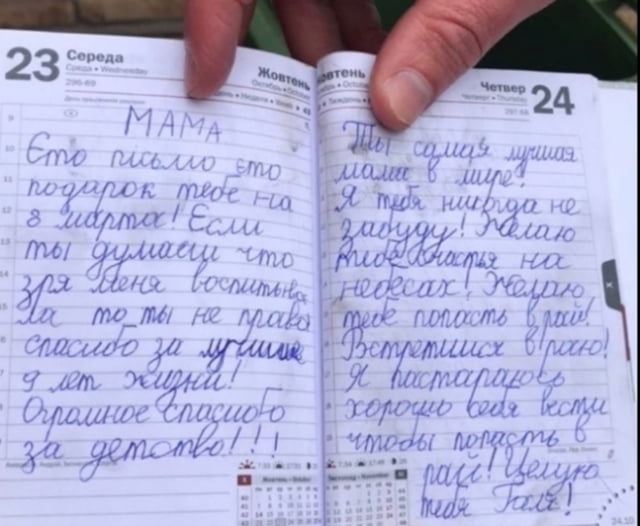 23 Середа
Среда • Wednesday
296-69
Жовтень
МАМА
Єто письмо єто
подарок тебе на
8 марта! Если
ты думаеш что
зря меня воспитыва
ла то ты не права
спасибо за лучшие
9 лет жизни!
Огромное спасибо
за детство!!!
овтень
Четвер
Четверг • Thursday
297-68
24
Ты самая лучшая
мама в мире!
Я тебя никогда не
забуду! Желаю
тебе счастья на
небесах! Желаю
тебе попасть в рай!
Встретимся в раю!
Я пастараюсь
хорошо себя вести
чтобы попасть в
рай! Целую
тебя Галя!